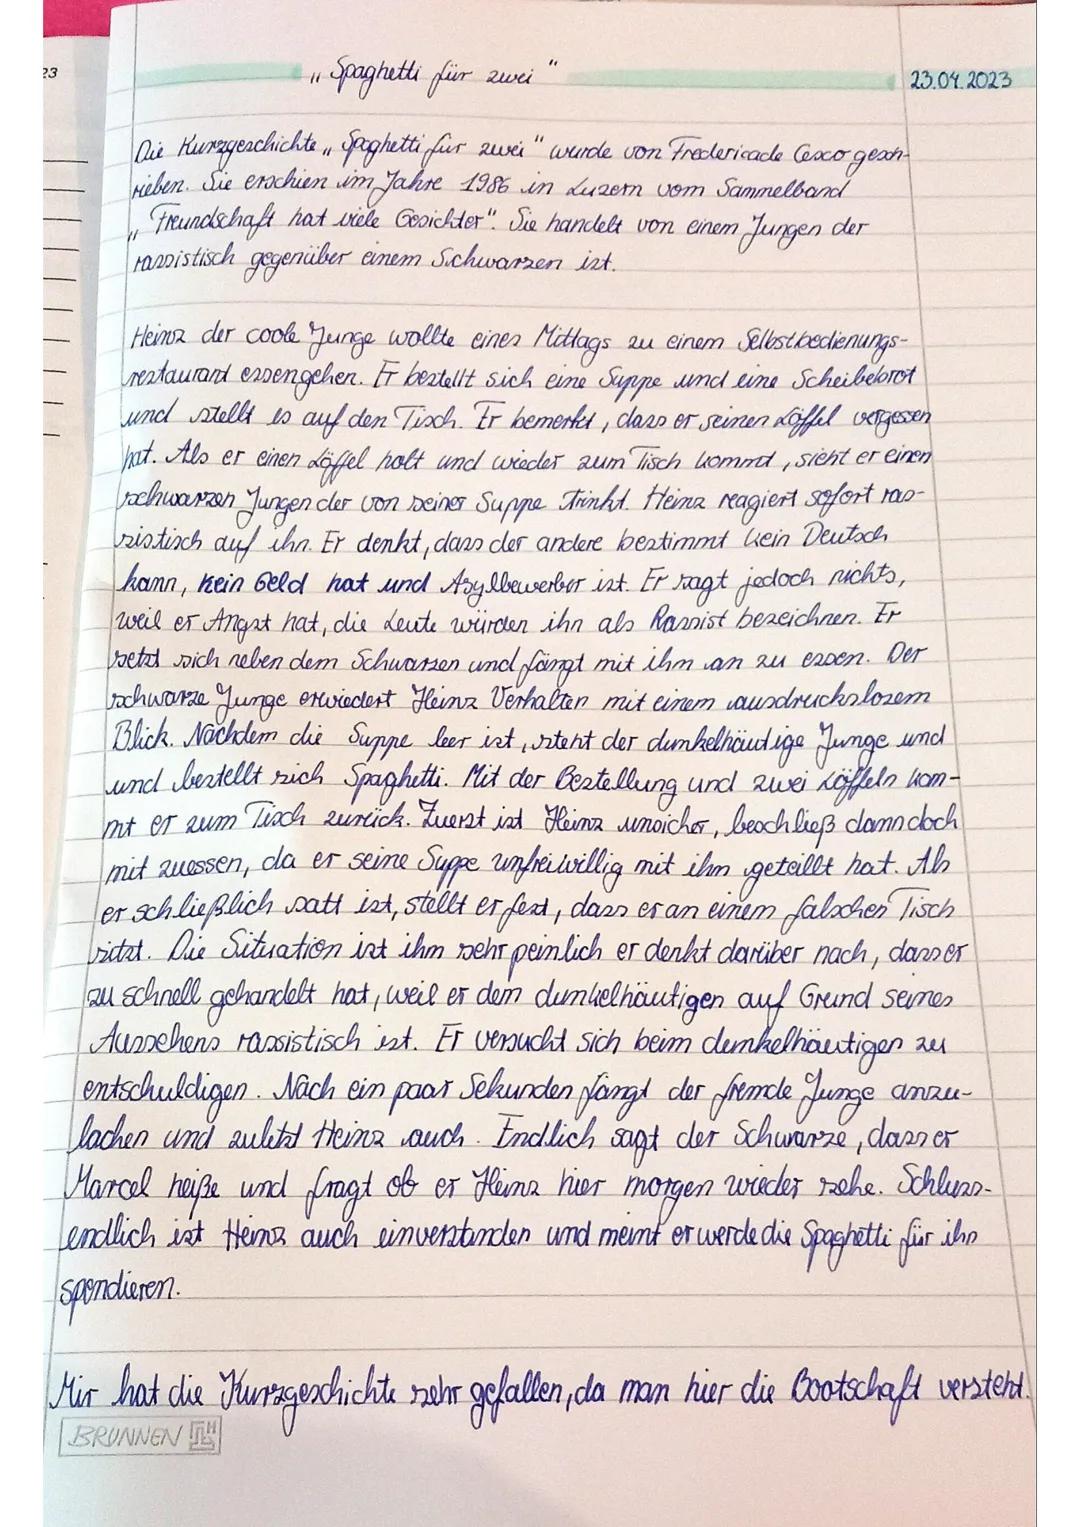 23
„Spaghetti für zwei"
23.04.2023
Die Kurzgeschichte „Spaghetti für zwei" wurde von Federica de Cesco gesch-
rieben. Sie erschien im Jahre 1986 in Luzern vom Sammelband
„Freundschaft hat viele Gesichter". Sie handelt von einem Jungen der
rassistisch gegenüber einem Schwarzen ist.
Heinz der coole Junge wollte eines Mittags zu einem Selbstbedienungs-
restaurant essengehen. Er bestellt sich eine Suppe und eine Scheibebrot
und stellt es auf den Tisch. Er bemerkt, dass er seinen Löffel vergessen
hat. Als er einen Löffel holt und wieder zum Tisch kommt, sieht er einen
schwarzen Jungen der von seiner Suppe Trinkt. Heinz reagiert sofort ras-
sistisch auf ihn. Er denkt, dass der andere bestimmt kein Deutsch
kann, kein Geld hat und Asylbewerber ist. Er sagt jedoch nichts,
weil er Angst hat, die Leute würden ihn als Rassist bezeichnen. Er
setzt sich neben dem Schwarzen und fängt mit ihm an zu essen. Der
schwarze Junge erwiedert Heinz Verhalten mit einem ausdruckslosem
Blick. Nachdem die Suppe leer ist, steht der dunkelhäutige Junge und
und bestellt sich Spaghetti. Mit der Bestellung und zwei Löffeln kom-
mt er zum Tisch zurück. Zuerst ist Heinz unsicher, beschließ dann doch
mit zuessen, da er seine Suppe unfreiwillig mit ihm geteillt hat. Als
er schließlich satt ist, stellt er fest, dass er an einem falschen Tisch
sitzt. Die Situation ist ihm sehr peinlich er denkt darüber nach, dass er
zu schnell gehandelt hat, weil er dem dunkelhäutigen auf Grund seines
Aussehens rassistisch ist. Er versucht sich beim dunkelhäutigen zu
entschuldigen. Nach ein paar Sekunden fängt der fremde Junge anzu-
lachen und zuletzt Heinz auch. Endlich sagt der Schwarze, dass er
Marcel heiße und fragt ob er Heinz hier morgen wieder sehe. Schluss-
endlich ist Heinz auch einverstanden und meint er werde die Spaghetti für ihn
spendieren.
Mir hat die Kurzgeschichte sehr gefallen, da man hier die Bootschaft versteht.
BRUNNEN